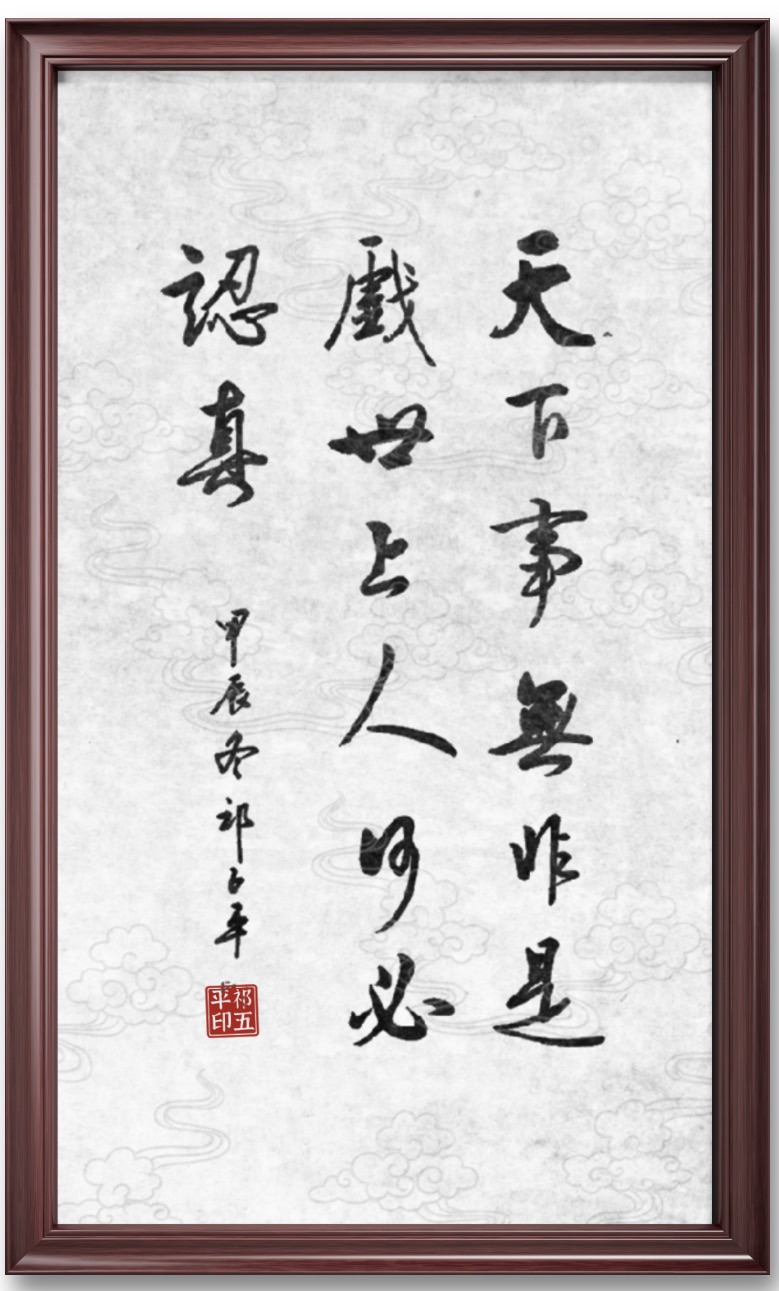 天下事無非是
戲世上人何必
認真
甲辰冬祁子平
祁五平印